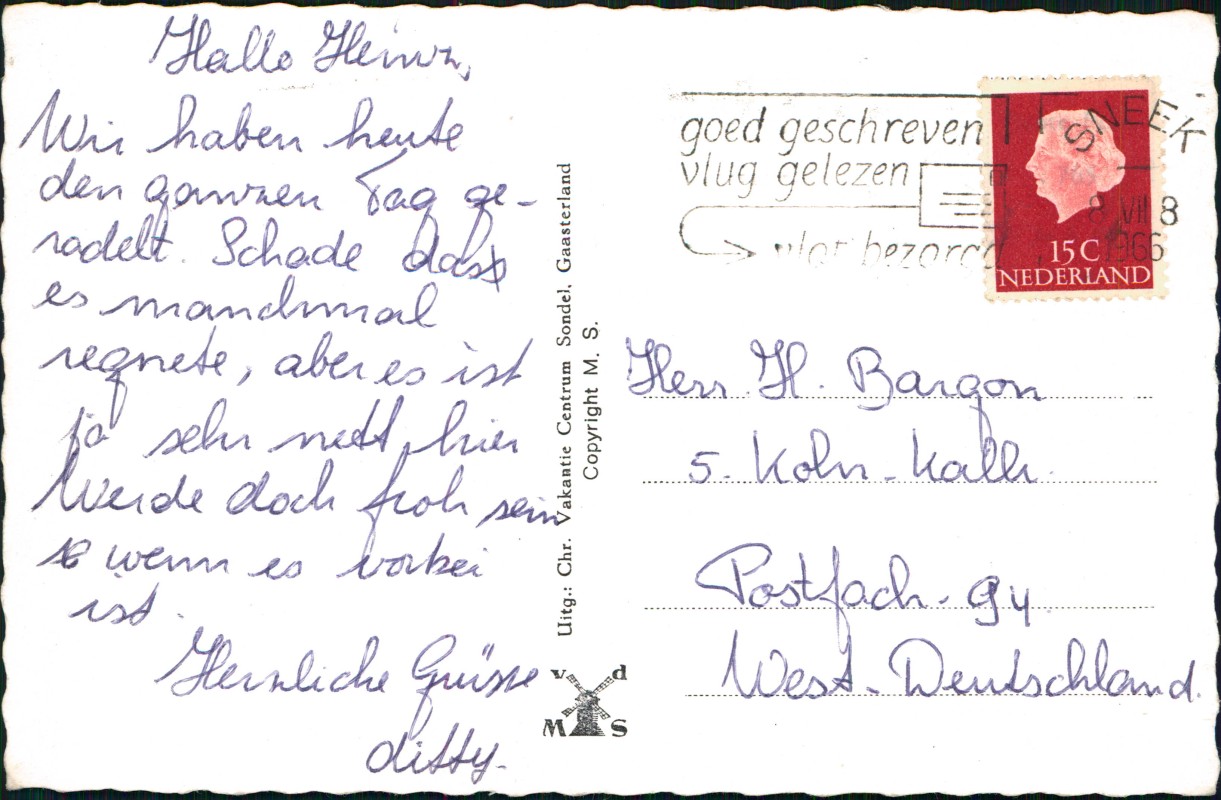 Hallo Heinz,
Wir haben heute
den ganzen Tag ge-
radelt. Schade dass
es manchmal
regnete, aber es ist
ja sehr nett hier
Werde doch froh sein
wenn es vorbei
ist.
Herzliche Grüsse
ditty.
Uitg.: Chr. Vakantie Centrum Sondel, Gaasterland
Copyright M. S.
v d
M S
goed geschreven
vlug gelezen
vlot bezorgd
SNEEK
8 VIII 8
1966
15 C
NEDERLAND
Herr H. Bargon
5. Koln-Kalk.
Postfach. 94
West-Deutschland.